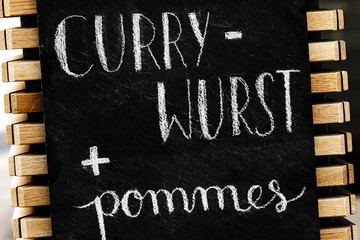 CURRY-
WURST
+
pommes